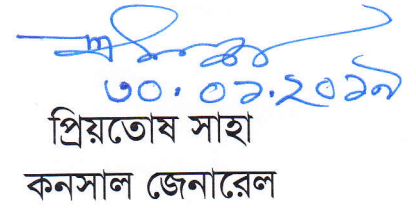 ৩০.০১.২০১৭
প্রিয়তোষ সাহা
কনসাল জেনারেল